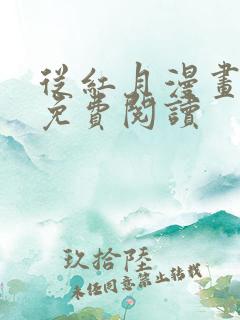 從紅月漫畫
免費閱讀
玖拾陸
未經同意禁止轉載